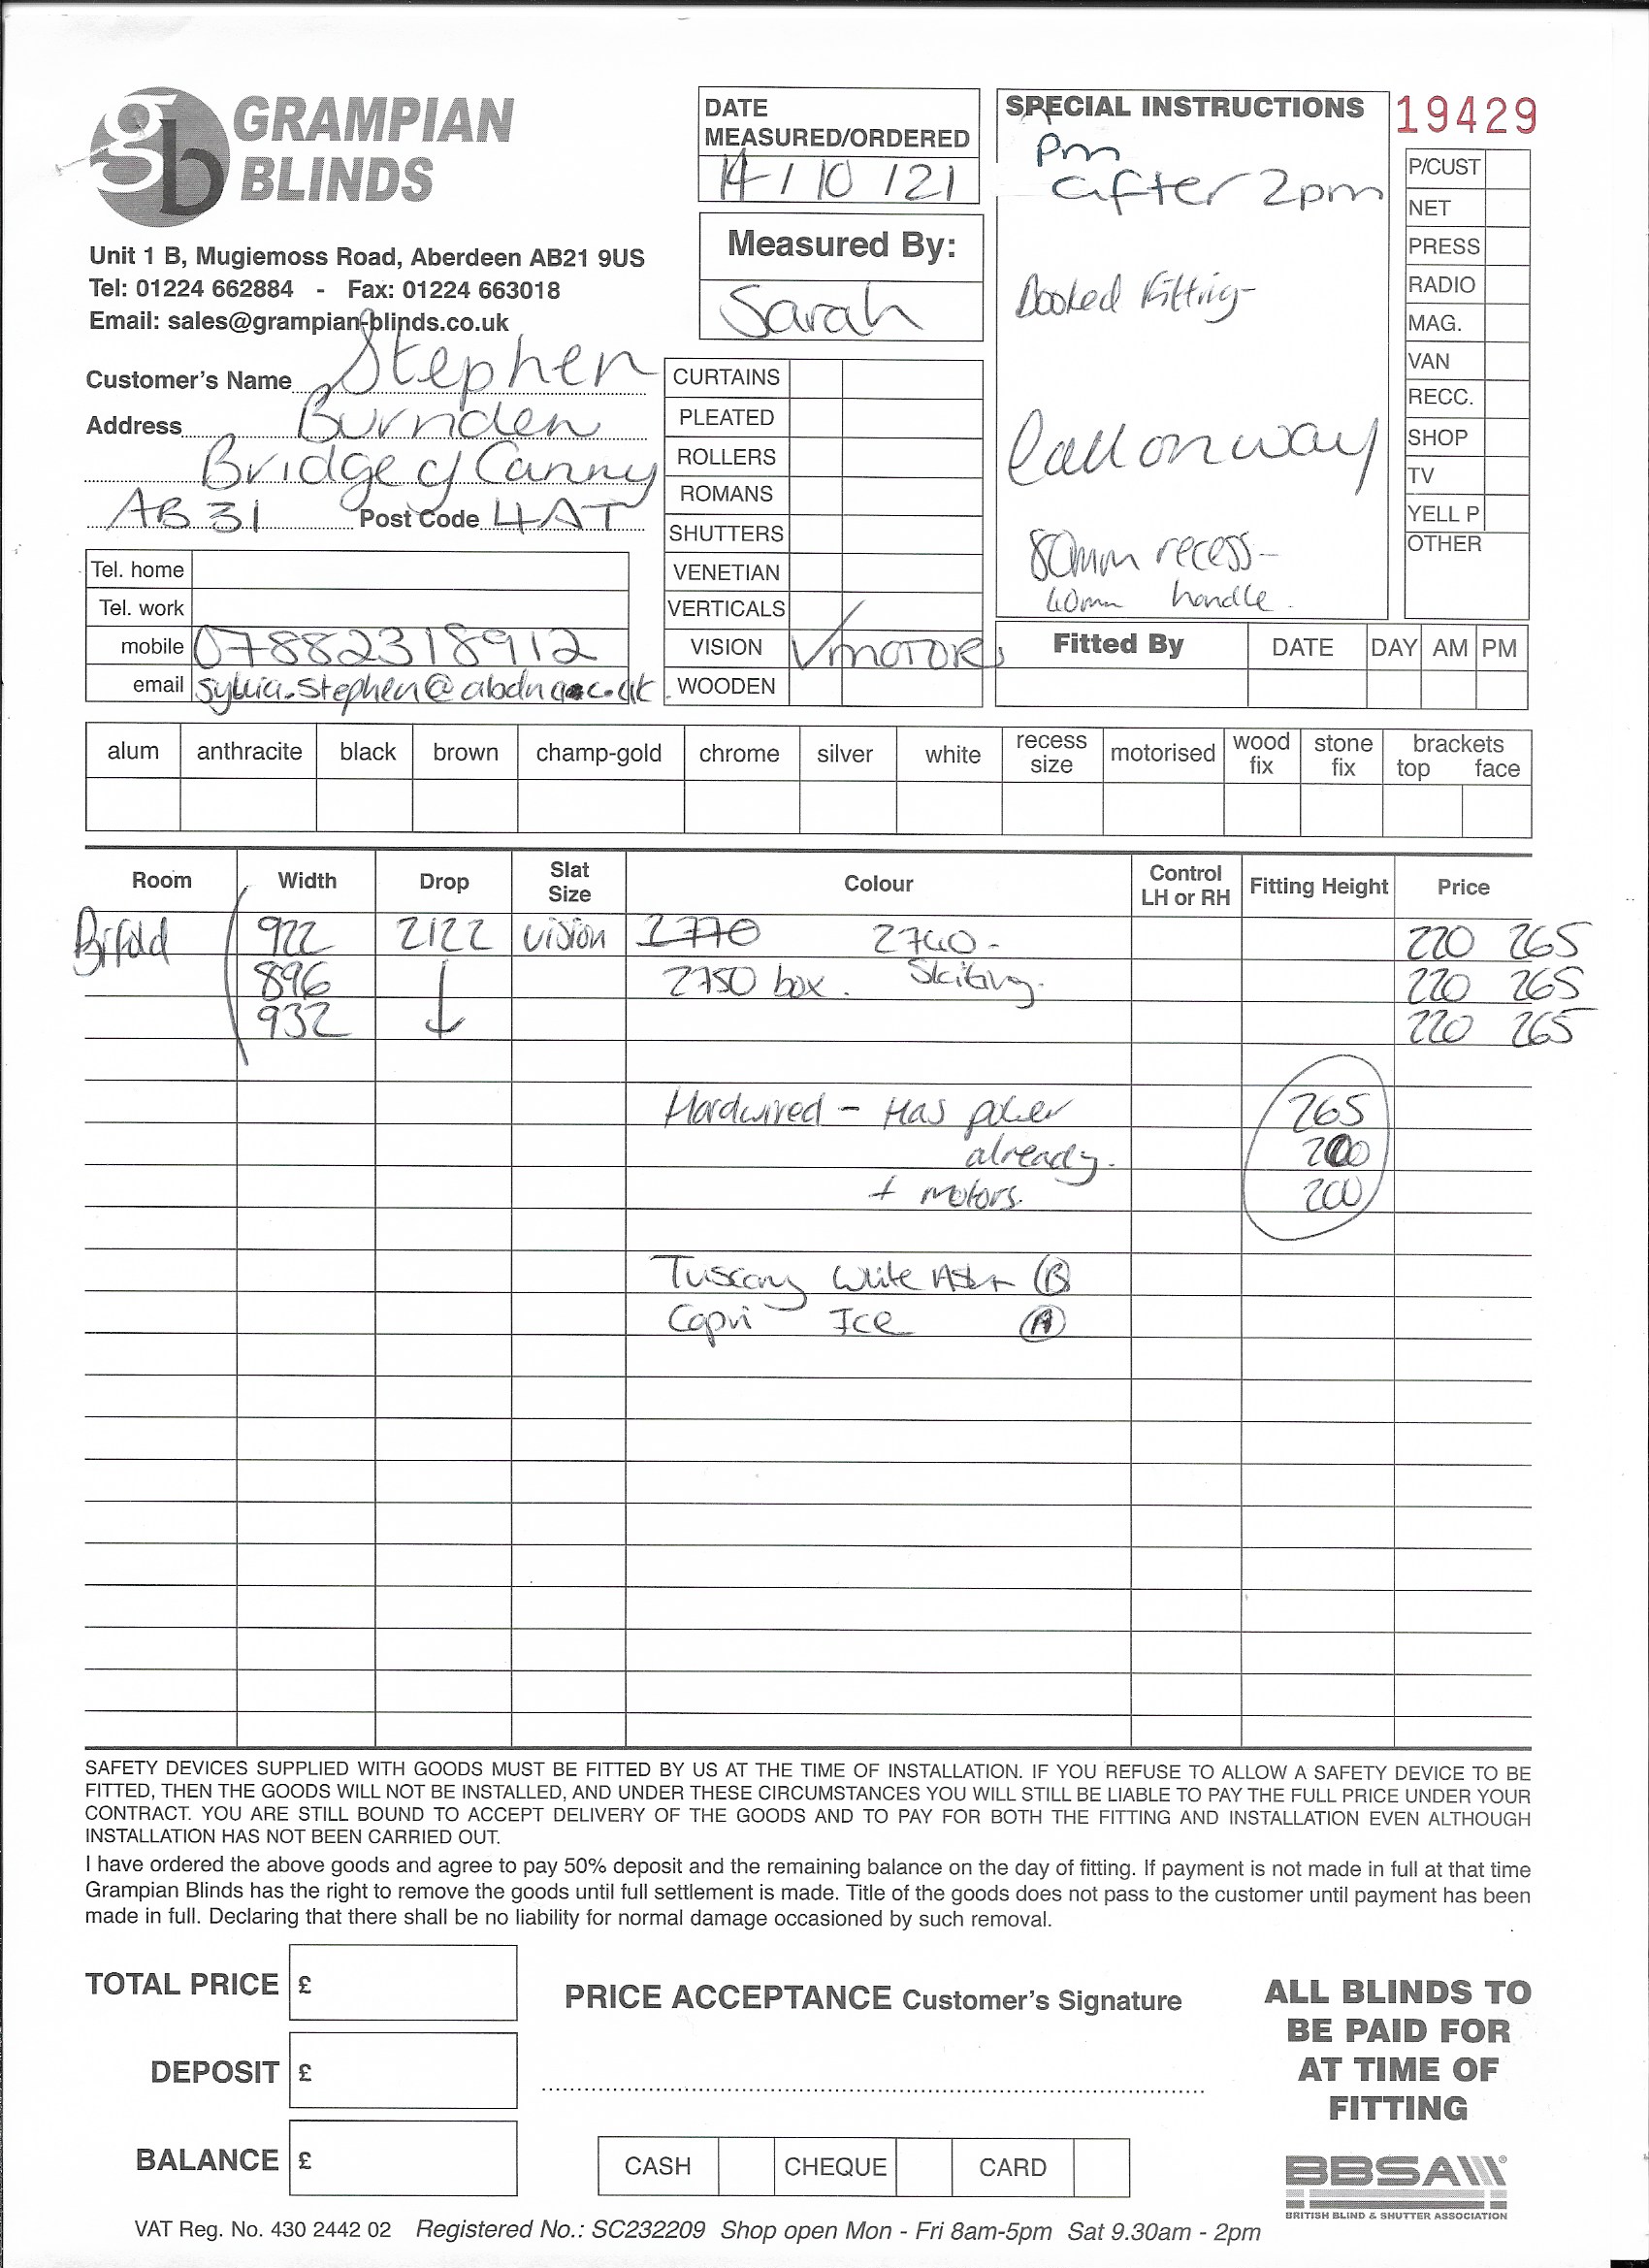 GRAMPIAN
BLINDS
Unit 1 B, Mugiemoss Road, Aberdeen AB21 9US
Tel: 01224 662884 - Fax: 01224 663018
Email: sales@grampian-blinds.co.uk
DATE
MEASURED/ORDERED
14/10/21
Measured By:
Sarah
SPECIAL INSTRUCTIONS
pm
after 2pm
Booked Fitting-
Call on way
80mm recess-
40mm handle.
19429
P/CUST
NET
PRESS
RADIO
MAG.
VAN
RECC.
SHOP
TV
YELL P
OTHER
Customer's Name Stephen
Address Burnden
Bridge of Canny
AB31 Post Code 4AT
Tel. home
Tel. work
mobile 07882318912
email
CURTAINS
PLEATED
ROLLERS
ROMANS
SHUTTERS
VENETIAN
VERTICALS
VISION ✓ MOTORS
WOODEN
Fitted By DATE DAY AM PM
alum anthracite black brown champ-gold chrome silver white recess size motorised wood fix stone fix brackets top face
Room Width Drop Slat Size Colour Control LH or RH Fitting Height Price
Bifold 922 2122 vision 2770 2740- 220 265
896 2750 box. 220 265
932 220 265
Hardwired - Has power 265
already. 200
+ motors. 200
Tuscany White Ash B
Capri Ice A
SAFETY DEVICES SUPPLIED WITH GOODS MUST BE FITTED BY US AT THE TIME OF INSTALLATION. IF YOU REFUSE TO ALLOW A SAFETY DEVICE TO BE
FITTED, THEN THE GOODS WILL NOT BE INSTALLED, AND UNDER THESE CIRCUMSTANCES YOU WILL STILL BE LIABLE TO PAY THE FULL PRICE UNDER YOUR
CONTRACT. YOU ARE STILL BOUND TO ACCEPT DELIVERY OF THE GOODS AND TO PAY FOR BOTH THE FITTING AND INSTALLATION EVEN ALTHOUGH
INSTALLATION HAS NOT BEEN CARRIED OUT.
I have ordered the above goods and agree to pay 50% deposit and the remaining balance on the day of fitting. If payment is not made in full at that time
Grampian Blinds has the right to remove the goods until full settlement is made. Title of the goods does not pass to the customer until payment has been
made in full. Declaring that there shall be no liability for normal damage occasioned by such removal.
TOTAL PRICE £
DEPOSIT £
BALANCE £
PRICE ACCEPTANCE Customer's Signature
CASH CHEQUE CARD
ALL BLINDS TO
BE PAID FOR
AT TIME OF
FITTING
BBSA
BRITISH BLIND & SHUTTER ASSOCIATION
VAT Reg. No. 430 2442 02 Registered No.: SC232209 Shop open Mon - Fri 8am-5pm Sat 9.30am - 2pm